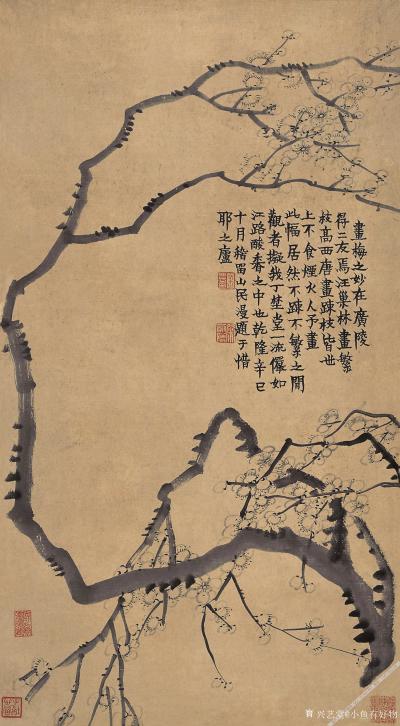 畫梅之妙在廣陵
得二友焉汪巢林畫繁
枝高西唐畫疎枝皆世
上不食煙火人予畫
此幅居然不疎不繁之間
觀者擬我丁埜堂一流儼如
江路酸香之中也乾隆辛巳
十月稽留山民漫題于惜
耶之廬
兴艺堂@小鱼有好物